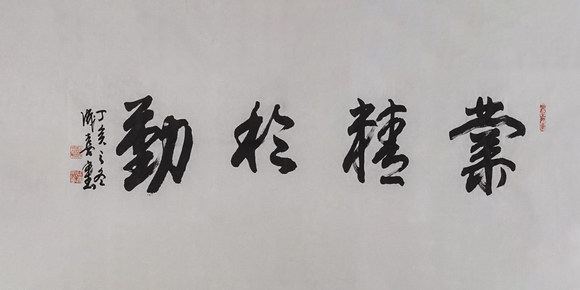 業精於勤
丁亥之冬